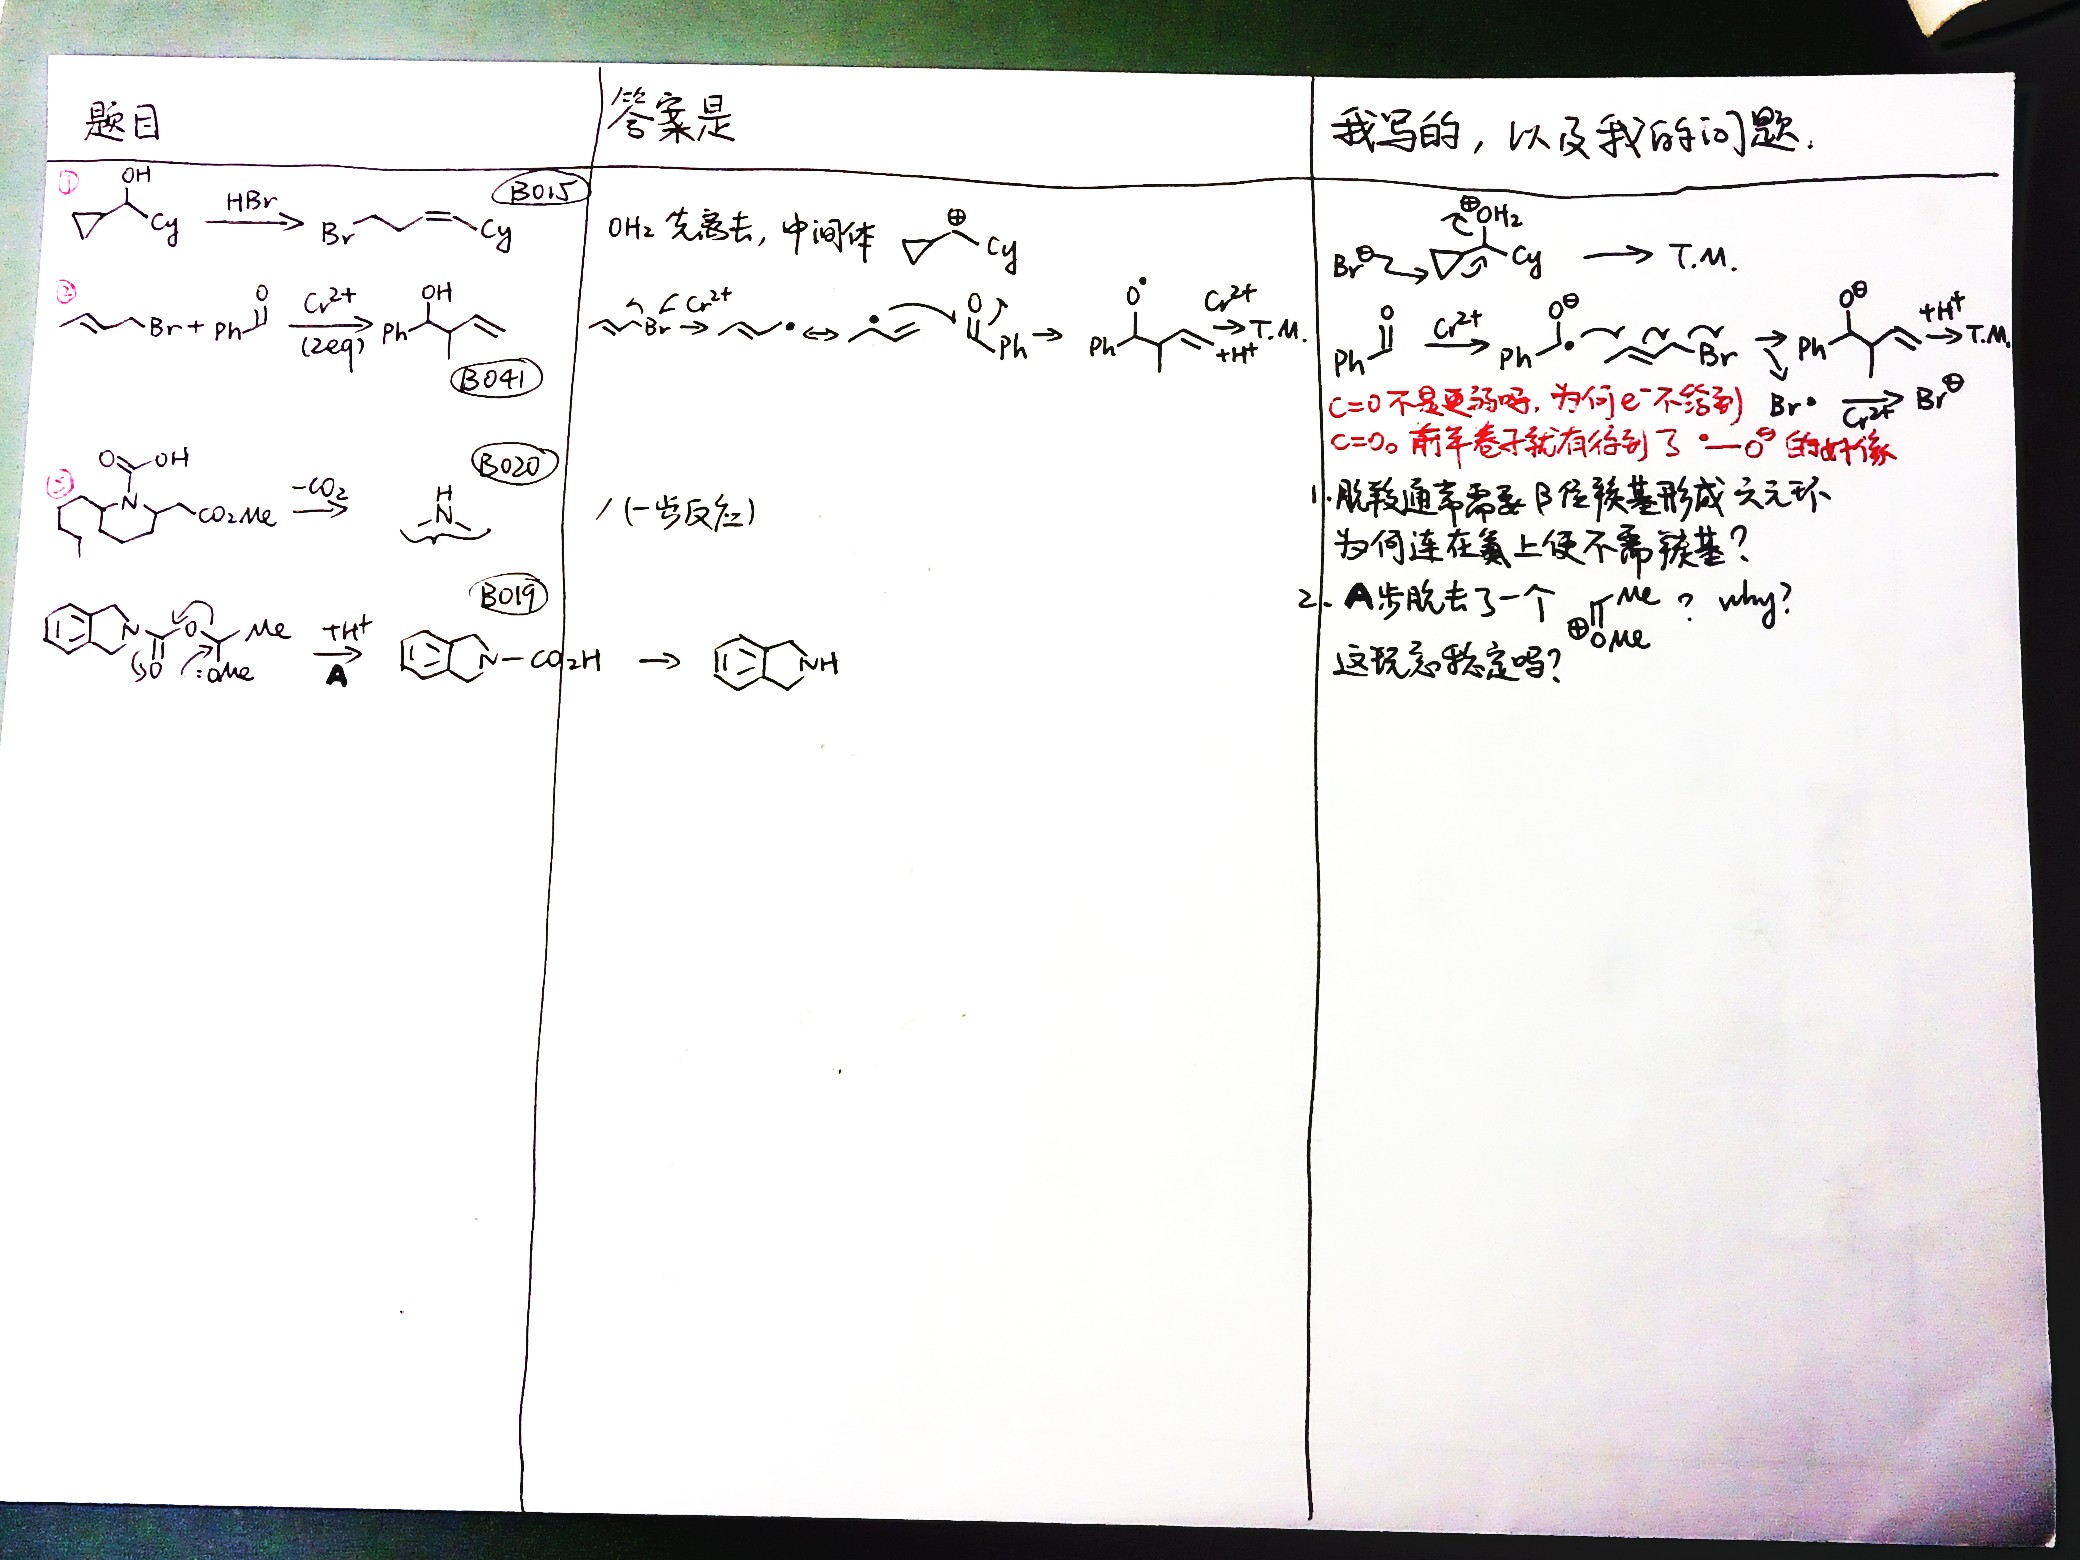 题目
答案是
我写的，以及我的问题.
① OH Cy HBr Br Cy B015
OH₂ 先离去，中间体 ⊕ Cy
⊕OH₂ Br⊖ Cy → T.M.
② Br + Ph O Cr²⁺ (2eq) OH Ph B041
Br Cr²⁺ → ↔ O Ph → O• Ph Cr²⁺ +H⁺ → T.M.
O Ph Cr²⁺ → O⊖ Ph • Br → O⊖ Ph +H⁺ → T.M.
Br• Cr²⁺ → Br⊖
C=O 不是更弱吗，为何e⁻不给到
C=O。前年卷子就有得到了 •—O⊖ 的好像
③ O OH N CO₂Me -CO₂ → H N B020
/ (一步反应)
1. 脱羧通常需要β位羰基形成六元环
为何连在氮上便不需羰基？
B019
N O O Me :OMe +H⁺ A → N-CO₂H → NH
2. A步脱去了一个 Me ⊕OMe ? why?
这玩意稳定吗？